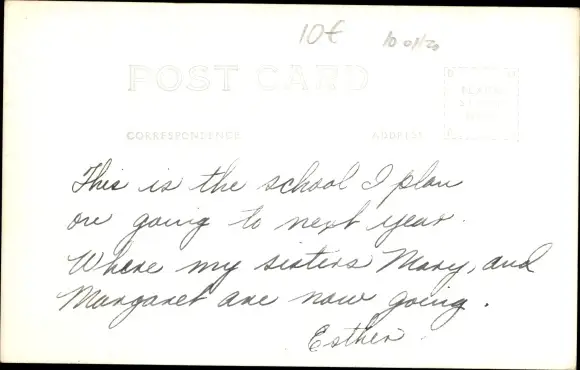 10€
POST CARD
CORRESPONDENCE ADDRESS
PLACE
STAMP
HERE
This is the school I plan
on going to next year.
Where my sisters Mary, and
Margaret are now going.
Esther.